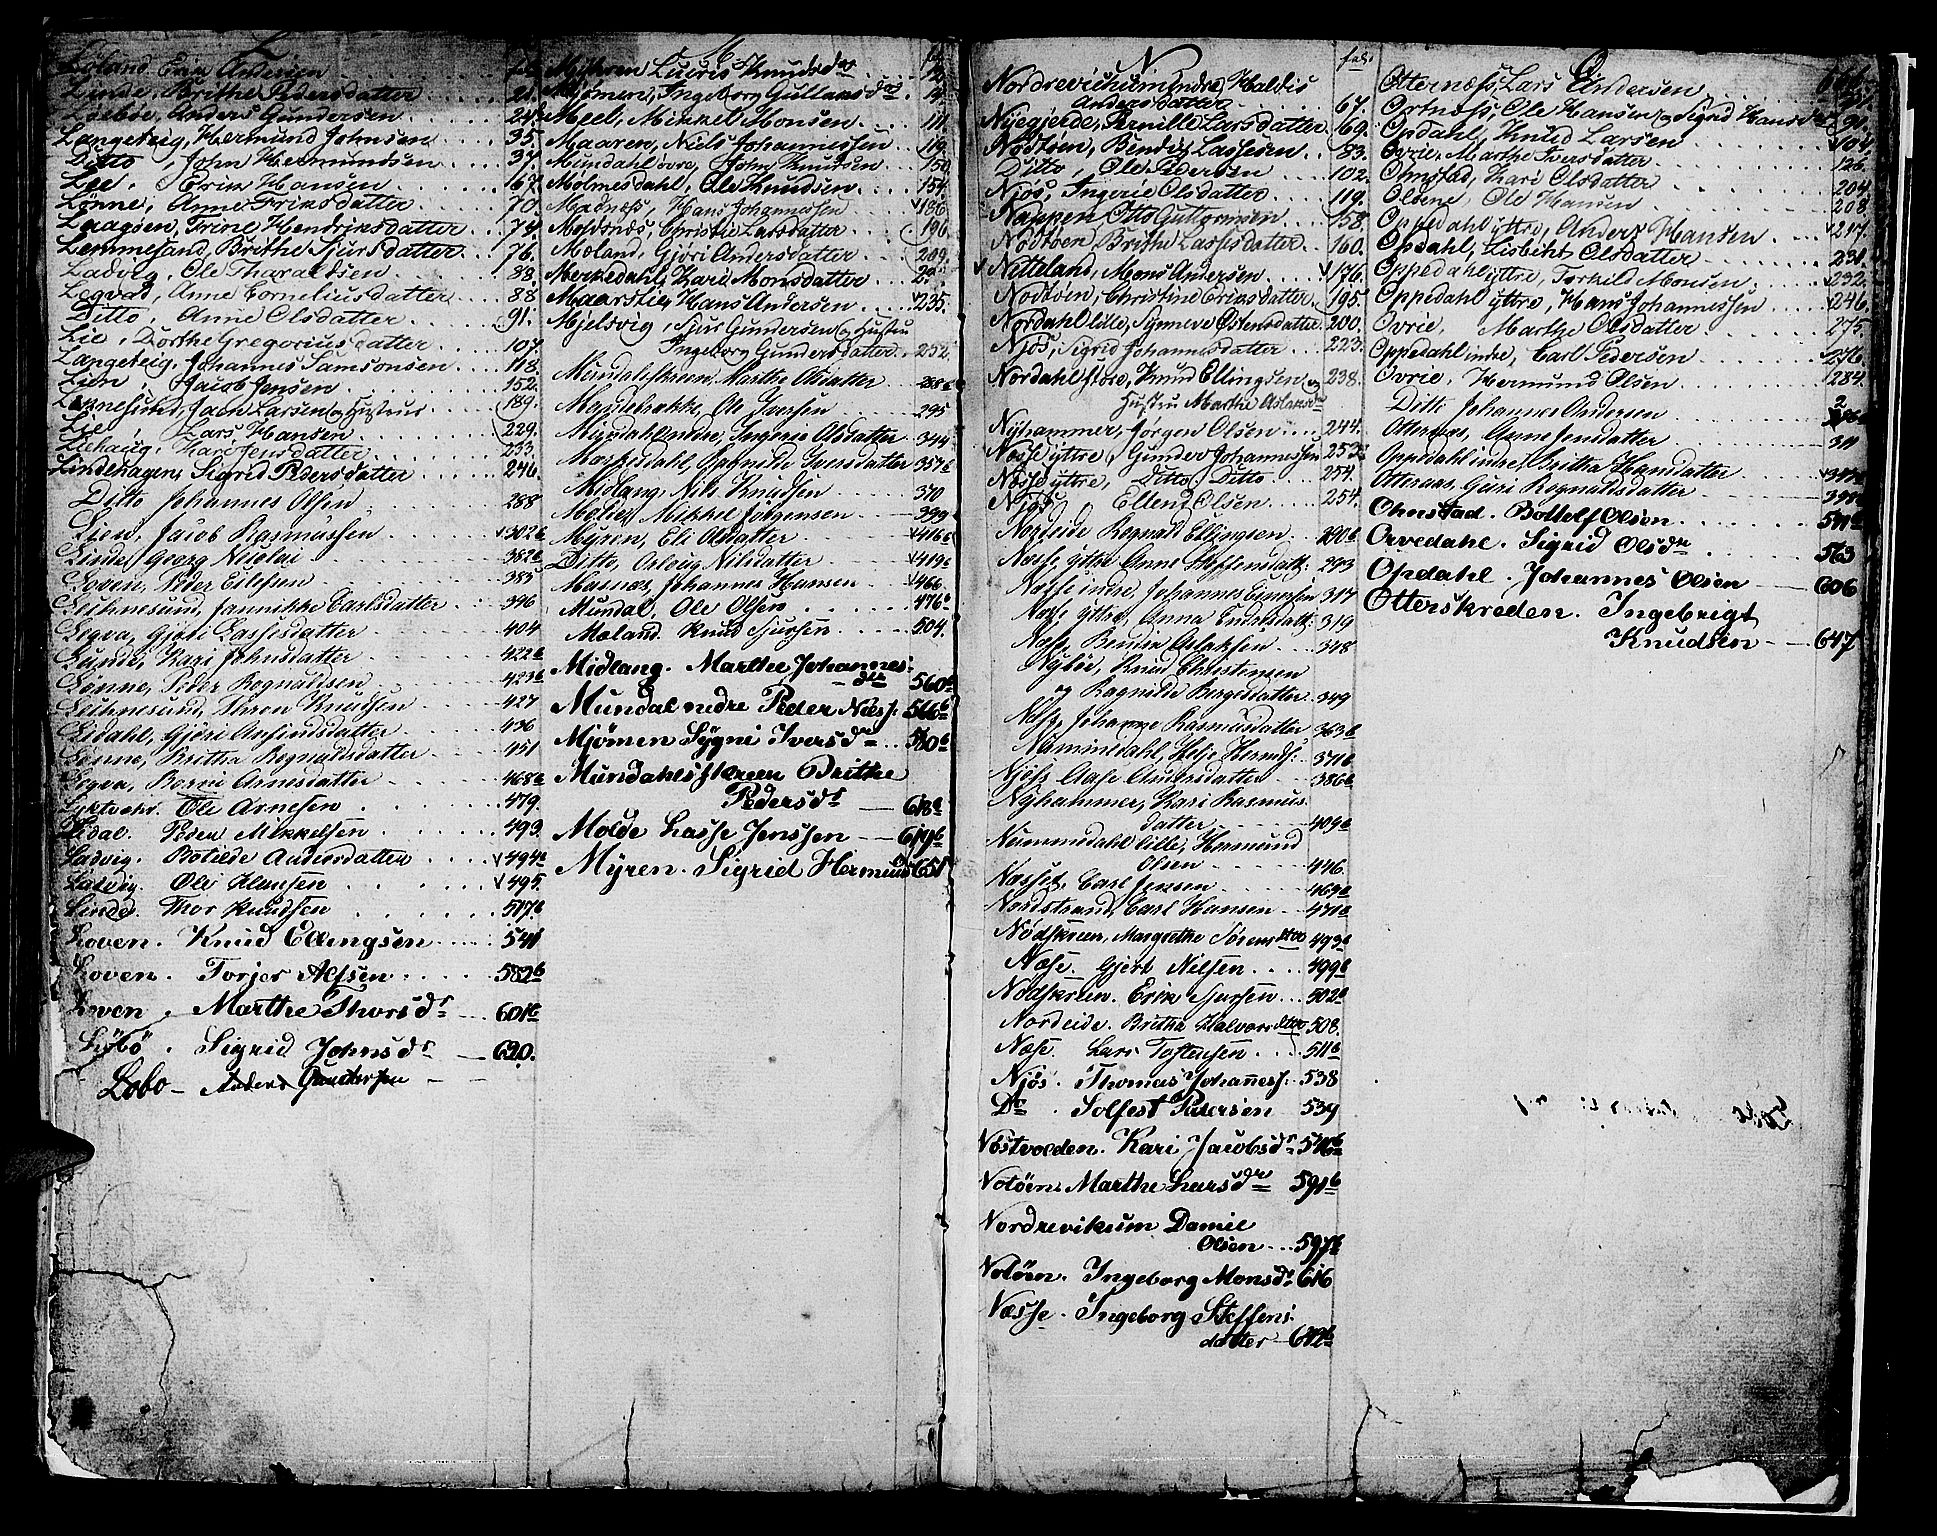 L
Löland Erik Andersen
Linde, Brithe Pedersdatter 21.
Löeböe, Anders Gundersen 24
Langeteig, Hermund Johnsen 35.
Ditto, John Hermundsen 37.
Lee, Erik Hansen 67.
Lönne, Anne Eriksdatter 70.
Laagsen, Trine Hendriksdatter 74
Lemmesand, Brithe Sjursdatter 76.
Ladvig, Ole Tharaldsen 83.
Legvad, Anne Corneliusdatter 88
Ditto, Anne Olsdatter 91.
Lie, Dorthe Gregoriusdatter 107.
Langeteig, Johannes Samsonsen 118.
Lien, Jacob Jensen 152.
Lars Larsen og Hustrue 189.
Lie, Lars Hansen 229.
Kari Jensdatter 233.
Lindehagen, Sigrid Pedersdatter 246.
Ditto Johannes Olsen 288
Lien, Jacob Rasmussen 302b
Linde, Georg Nicolai 382b
Loven, Peder Eilefsen 383
Jannikke Carlsdatter 396
Ligva, Gjøri Lassesdatter 404
Lunde, Kari Johnsdatter 422b
Lönne, Peder Rognaldsen 423b
Knudsen 427
Lidahl, Gjøri Anfindsdatter 436
Lönne, Britha Rognaldsdatter 451
Ligva, Borni Arnesdatter 468b
Ole Arnesen 479.
Lidal. Peder Mikkelsen 493.
Ladvig. Botilde Andersdatter 494a
Ladvig. Ole Klausen 495.
Linde. Thor Knudsen 517b
Loven. Knud Ellingsen 541
Loven. Torjer Alfsen 582b
Loven. Marthe Thorsdr 601b
Löbö. Sigrid Johnsdr 620.
Lobo - Anders Gundersen
M fol.
Lucris Knudsdr 12.
Mjömen, Ingeborg Gullaksdr 14.
Meel, Mikkel Monsen 111.
Maaren, Niels Johannessen 119.
Mundahl övre, John Knudsen 150.
Mölmesdahl, Ole Knudsen 154.
Madnæss, Hans Johannessen 186
Moldsnæs, Christie Larsdatter 196
Moland, Gjöri Andersdatter 209.
Merkedahl, Kari Monsdatter
Maarstie, Hans Andersen 235.
Mjelsvig, Sjur Gundersen og Hustru
Ingeborg Gundersdatter 252.
Mundahlskreen, Marthe Olsdatter 288
Ole Iversen 295
Mundahl indre, Ingerie Olsdatter 344
Markesdahl, Ragnilde Iversdatter 357b
Midlang, Nils Knudsen 370
Mikkel Jörgensen 399
Myren, Eli Olsdatter 416b
Ditto, Oslaug Nilsdatter 419b
Masnæs, Johannes Hansen 466
Mundal, Ole Olsen 476b
Moland. Knud Sjursen 504.
Midlang. Marthe Johannes
dtr 560b
Mundal nedre Peder Næss 566b
Mjömen Sygni Iversdr 580b
Mundahlsskreen Brithe
Pedersdr 618a
Molde Lasse Jenssen 619b
Myren. Sigrid Hermunds 651
N fol.
Nordrevichum indre, Haldis
Andersdatter 67.
Nyegjerde, Pernille Larsdatter 69.
Nödtøen, Bendix Lassesen 83.
Ditto, Ole Pedersen 102.
Njös, Ingerie Olsdatter 119.
Nappen Otto Guttormsen 158.
Nödtöen Brithe Lassesdatter 160.
Nitteland, Mons Andersen 176.
Nodtöen, Christine Eriksdatter 195.
Nordahl lille, Synneve Ostensdatter 200.
Njös, Sigrid Johannesdatter 223.
Nordahl store, Knud Ellingsen og 238.
Hustru Marthe Aslaksdr
Nyhammer, Jørgen Olsen 244.
Næsse yttre, Gunder Johannessen 253b
Næsse yttre, Ditto Ditto 254.
Njös Ellend Olsen 254.
Nordeide Rognald Ellingsen 290b
Næsse yttre Anne Steffensdatt: 293
Næsse indre, Johannes 317
Næss yttre, Anna 319
Næss, Bendix Aslaksen 348
Nybøe, Knud Christensen
og Ragnilde Børgesdatter 349
Næss, Johanne Rasmusdatter 363b
Nummedahl, Helje Hermds: 371b
Njøss Aase Andersdatter 386b
Nyhammer, Kari Rasmus
datter 409b
Nummedahl lille, Hermund
Olsen 446.
Næsset, Carl Jensen 469b
Nordstrand, Carl Hansen 471b
Nödskreen, Margrethe Sørens dtto 493b
Næse. Gjert Nilsen 499b
Nödskreen. Erik Sjursen 502b
Nordeide. Britha Halvors dtto 508.
Næse. Lars Tostensen 511b
Njös. Thomas Johanness. 538
Do. Solfest Petersen 539
Nöstvolden. Kari Jacobsdr 546b
Notöen. Marthe Larsdr 591b
Nordrevikum Daniel
Olsen 597b
Notöen. Ingeborg Monsdr 616
Næsse. Ingeborg Steffens:
datter 642b
O
Otternæss, Lars Andersen
Ortnæss, Ole Hansen og Sigrid Hansdr 90.
Opdahl, Knud Larsen 104.
Ovrie, Marthe Iversdatter 126.
Omstad, Kari Olsdatter 204
Olsene, Ole Hansen 208.
Oppedahl yttre, Anders Hansen 217.
Opdahl, Lisbeth Olsdatter 231.
Oppedahl yttre, Torkild Monsen 232.
Oppedahl yttre, Hans Johannessen 246.
Ovrie, Marthe Olsdatter 275
Oppedahl indre, Carl Pedersen 276.
Ovrie, Hermund Olsen 284.
Ditto Johannes Andersen
Anne Jensdatter 311
Oppedahl indre, Britha Hansdatter
Otteraas, Guri Rognaldsdatter 398
Omstad. Bottolf Olsen 541b
Orvedahl. Sigrid Olsdr 563
Opdahl. Johannes Olsen 606
Otterskreden. Ingebrigt
Knudsen 647